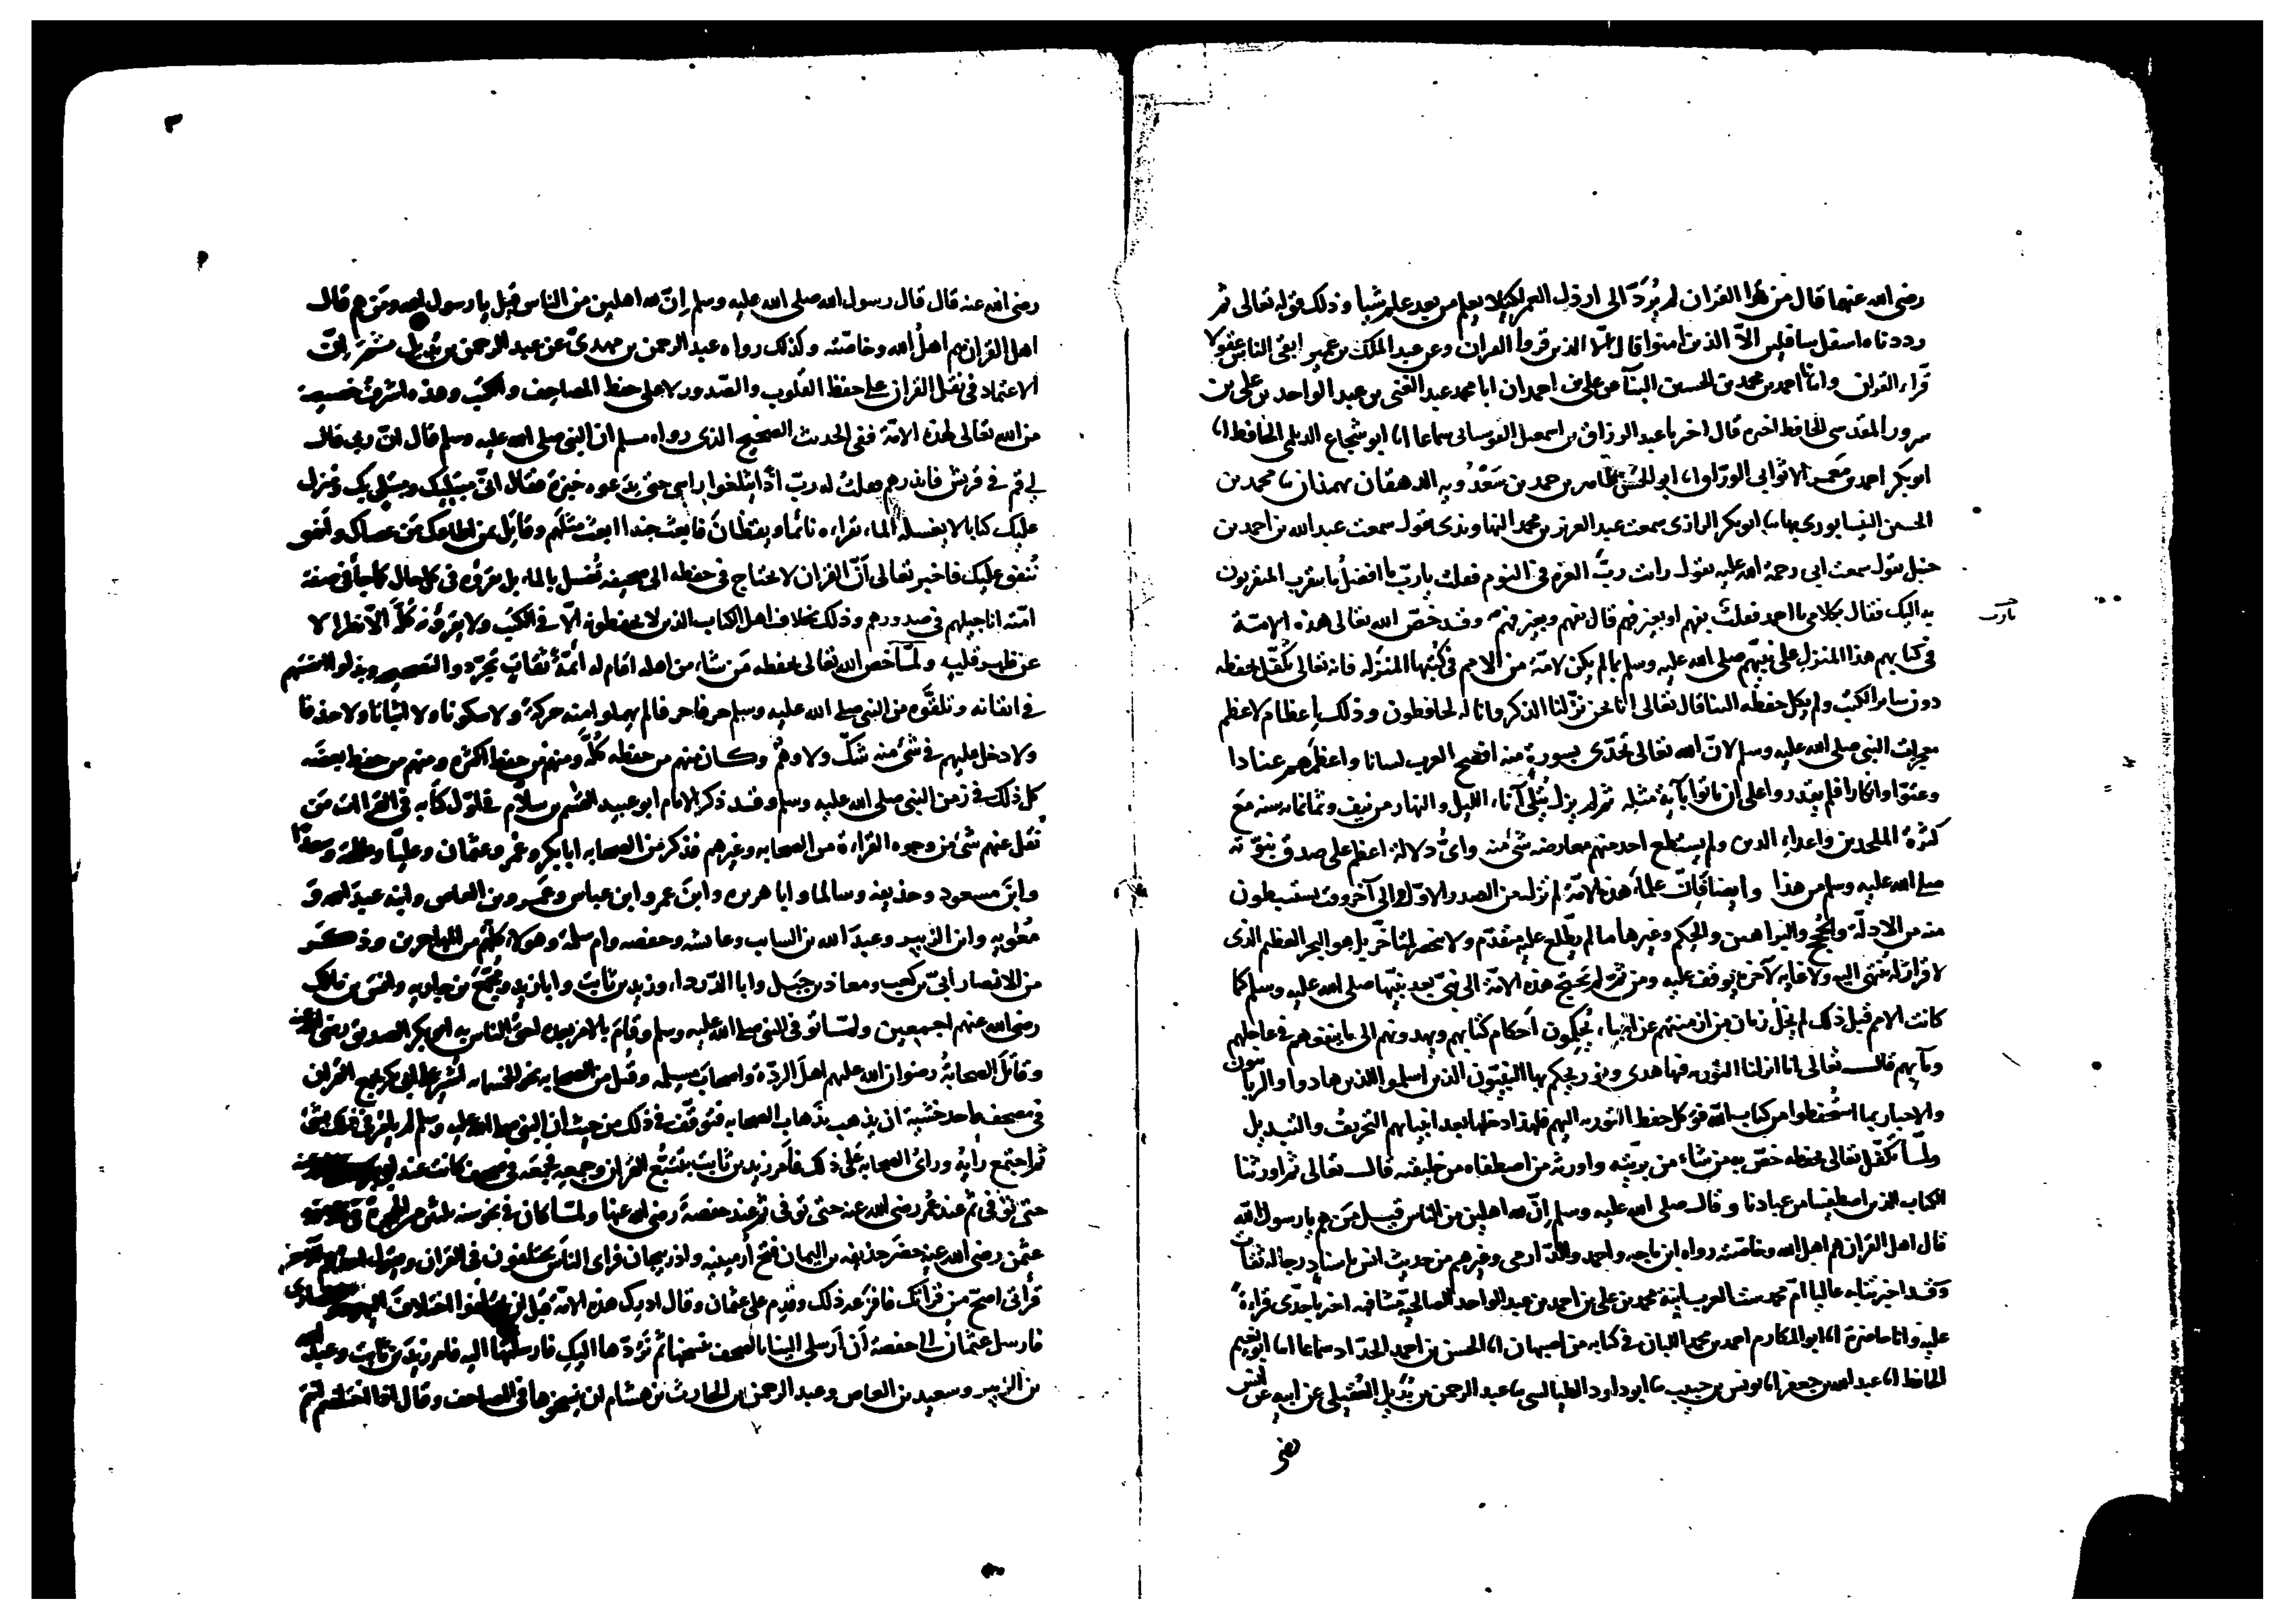 رضى الله عنهما قال من قرا القران لم يُرَدّ الى ارذل العمر لكيلا يعلم من بعد علم شيا وذلك قوله تعالى ثم
رددناه اسفل سافلين الا الذين امنوا قال الا الذين قروا القران وعن عبد الملك بن عمير ابقى الناس عقولا
قراء القران احمد بن محمد بن الحسين البنا عن على بن احمد ان ابا محمد عبد الغنى بن عبد الواحد بن على بن
سرور المقدسى الحافظ اخبره قال اخبرنا عبد الرزاق بن اسمعيل القوسانى سماعا انا ابو شجاع الديلمى الحافظ انا
ابو بكر احمد بن معمر الاثوابى الوراق انا ابو الحسن طاهر بن حمد بن سعدويه الدهقان بهمذان ثنا محمد بن
الحسين النيسابورى بها ثنا ابو بكر الرازى سمعت عبد العزيز بن محمد النهاوندى يقول سمعت عبد الله بن احمد بن
حنبل يقول سمعت ابى رحمة الله عليه يقول رايت رب العزه فى النوم فقلت يا رب ما افضل ما يتقرب المتقربون
به اليك فقال بكلامى يا احمد فقلت بفهم او بغير فهم قال بفهم وبغير فهم وقد خصّ الله تعالى هذه الامة
يا رب
فى كتابهم هذا المنزل على نبيهم صلى الله عليه وسلم بما لم يكن لامة من الامم فى كتبها المنزله فانه تعالى تكفل بحفظه
دون ساير الكتب ولم يكل حفظه الينا قال تعالى انا نحن نزلنا الذكر وانا له لحافظون وذلك اعظام لاعظم
معجزات النبى صلى الله عليه وسلم لان الله تعالى تحدّى بسورة منه افصح العرب لسانا واعظمهم عنادا
وعتوا وانكارا فلم يقدروا على ان ياتوا بآية مثله ثم لم يزل يتلى آناء الليل والنهار من نيف وثمانمايه سنه مع
كثرة الملحدين واعداء الدين ولم يستطع احد منهم معارضه شئ منه واى دلالة اعظم على صدق نبوته
صلى الله عليه وسلم من هذا وايضا فان علماء هذه الامة لم تزل من الصدر الاول والى آخر وقت يستنبطون
منه من الادلة والحجج والبراهين والحكم وغيرها ما لم يطلع عليه متقدم ولا ينحصر لمتاخر بل هو البحر العظيم الذى
لا قرار له ينتهى اليه ولا غايه لآخره يوقف عليه ومن ثم لم تحتج هذه الامة الى نبى بعد نبيها صلى الله عليه وسلم كما
كانت الامم قبل ذلك لم يخل زمان من ازمنتهم عن انبياء يحكمون احكام كتابهم ويهدونهم الى ما ينفعهم فى عاجلهم
ومآبهم قال تعالى انا انزلنا التوريه فيها هدى ونور يحكم بها النبيّون الذين اسلموا للذين هادوا والربانيون
والاحبار بما استحفظوا من كتاب الله فوكل حفظ التوريه اليهم فلهذا دخلها بعد انبيائهم التحريف والتبديل
ولما تكفل تعالى بحفظه خص به من شاء من بريته واورثه من اصطفاه من خليقته قال تعالى ثم اورثنا
الكتاب الذين اصطفينا من عبادنا وقال صلى الله عليه وسلم ان لله اهلين من الناس قيل من هم يا رسول الله
قال اهل القران هم اهل الله وخاصته رواه ابن ماجه واحمد والدارمى وغيرهم من حديث انس باسناد رجاله ثقات
وقد اخبرتنا به عاليا ام محمد ست العرب ابنة محمد بن على بن احمد بن عبد الواحد الصالحية مشافهه اخبرنا جدى قراءة
عليه وانا حاضرة انا ابو المكارم احمد بن محمد اللبان فى كتابه من اصبهان انا الحسن بن احمد الحداد سماعا انا ابو نعيم
الحافظ انا عبد الله بن جعفر انا يونس بن حبيب ثنا ابو داود الطيالسى ثنا عبد الرحمن بن بُدَيل العقيلى عن ابيه عن انس
رضى
رضى الله عنه قال قال رسول الله صلى الله عليه وسلم ان لله اهلين من الناس قيل يا رسول الله ومن هم قال
اهل القران هم اهل الله وخاصته وكذلك رواه عبد الرحمن بن مهدى عن عبد الرحمن بن بديل ثم ان
الاعتماد فى نقل القران على حفظ القلوب والصدور لا على حفظ المصاحف والكتب وهذه اشرف خصيصة
من الله تعالى لهذه الامة ففى الحديث الصحيح الذى رواه مسلم ان النبى صلى الله عليه وسلم قال ان ربى قال
لى قم فى قريش فانذرهم فقلت له رب اذا يثلغوا راسى حتى يدعوه خبزة فقال انى مبتليك ومبتلى بك ومنزل
عليك كتابا لا يغسله الماء تقراءه نائما ويقظان فابعث جندا ابعث مثلهم وقاتل بمن اطاعك من عصاك وانفق
ننفق عليك فاخبر تعالى ان القران لا يحتاج فى حفظه الى صحيفه تغسل بالماء بل يقرؤه فى كل حال كما جاء فى صفة
امته اناجيلهم فى صدورهم وذلك بخلاف اهل الكتاب الذين لا يحفظونه الا فى الكتب ولا يقرؤنه كله الا نظرا لا
عن ظهر قلب ولما خص الله تعالى بحفظه من شاء من اهله اقام له ائمة ثقات تجردوا لتصحيحه وبذلوا انفسهم
فى اتقانه وتلقوه من النبى صلى الله عليه وسلم حرفا حرفا لم يهملوا منه حركة ولا سكونا ولا اثباتا ولا حذفا
ولا دخل عليهم فى شئ منه شك ولا وهم وكان منهم من حفظه كله ومنهم من حفظ اكثره ومنهم من حفظ بعضه
كل ذلك فى زمن النبى صلى الله عليه وسلم وقد ذكر الامام ابو عبيد القسم بن سلام فى اول كتابه فى القراات من
نقل عنهم شئ من وجوه القراءة من الصحابه وغيرهم فذكر من الصحابه ابا بكر وعمر وعثمان وعليا وطلحة وسعدا
وابن مسعود وحذيفه وسالما وابا هريره وابن عمر وابن عباس وعمرو بن العاص وابنه عبد الله
ومعويه وابن الزبير وعبد الله بن السايب وعائشه وحفصه وام سلمة وهولاء كلهم من المهاجرين وذكر
من الانصار ابى بن كعب ومعاذ بن جبل وابا الدرداء وزيد بن ثابت وابا زيد ومجمع بن جاريه وانس بن مالك
رضى الله عنهم اجمعين ولما توفى النبى صلى الله عليه وسلم وقام بالامر بعده احق الناس به ابو بكر الصديق رضى الله عنه
وقاتل الصحابة رضوان الله عليهم اهل الردة واصحاب مسيلمه وقتل من الصحابه نحو الخمسمايه اشير على ابى بكر بجمع القران
فى مصحف واحد خشية ان يذهب بذهاب الصحابه فتوقف فى ذلك من حيث ان النبى صلى الله عليه وسلم لم يامر فى ذلك بشئ
ثم اجتمع رايه وراى الصحابه على ذلك فامر زيد بن ثابت بتتبع القران وجمعه فجمعه فى صحف كانت عند
حتى توفى ثم عند عمر رضى الله عنه حتى توفى ثم عند حفصة رضى الله عنها ولما كان فى نحو سنه ثلثين من الهجرة
عثمن رضى الله عنه حضر حذيفه بن اليمان فتح ارمينيه واذربيجان فراى الناس يختلفون فى القران ويقول
قرأتى اصح من قرأتك فافزعه ذلك وقدم على عثمان وقال ادرك هذه الامة قبل ان يختلفوا اختلاف
فارسل عثمان الى حفصة ان ارسلى الينا بالصحف ننسخها ثم نردها اليك فارسلتها اليه فامر زيد بن ثابت وعبد الله
بن الزبير وسعيد بن العاص وعبد الرحمن بن الحارث بن هشام ان ينسخوها فى المصاحف وقال اذا اختلفتم انتم